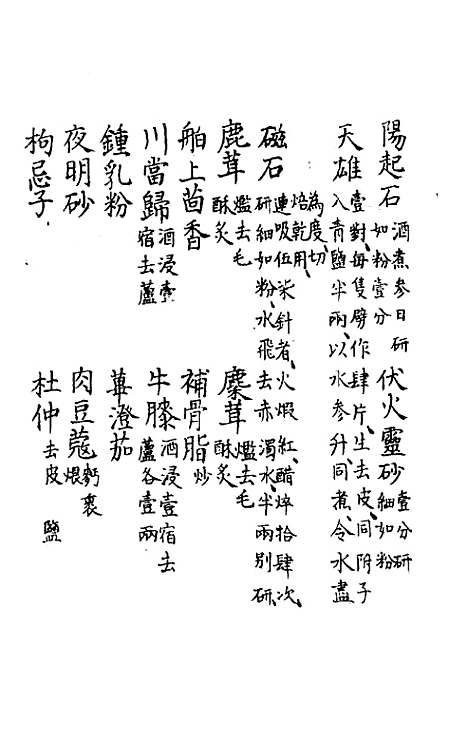 陽起石 酒煮参日研如粉壹分 伏火靈砂 壹分研細如粉
天雄 壹對、每隻劈作肆片、生去皮、同附子入青鹽半兩、以水参升、同煮、令水盡為度、切焙乾用、
磁石 連吸伍柒針者、火煅紅、醋焠拾肆次、研細如粉、水飛、去赤濁水、半兩別研、
鹿茸 爁去毛酥炙 麋茸 爁去毛酥炙
舶上茴香 補骨脂 炒
川當歸 酒浸壹宿去蘆 牛膝 酒浸壹宿去蘆各壹兩
鍾乳粉 蓽澄茄
夜明砂 肉豆蔻 麪裹煨
枸忌子 杜仲 去皮 鹽